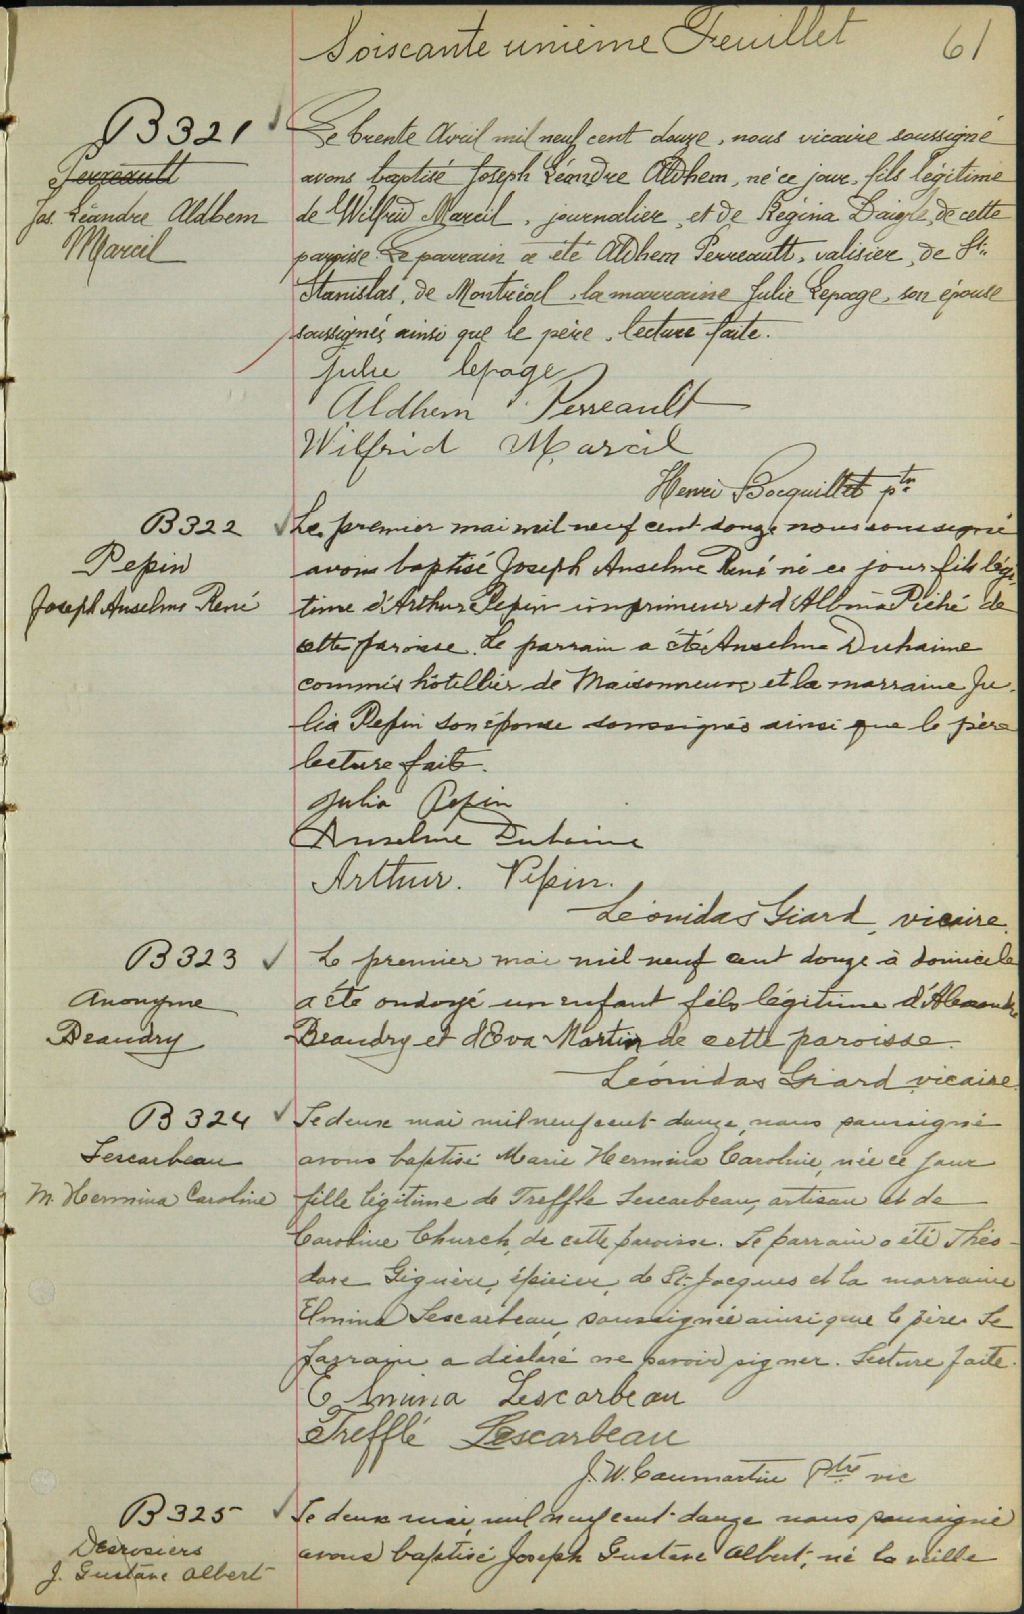 Soiscante unième Feuillet 61
B 321
Perreault
Jos. Léandre Aldhem
Marcil
Le trente Avril mil neuf cent douze, nous vicaire soussigné
avons baptisé Joseph Léandre Aldhem, né ce jour, fils légitime
de Wilfrid Marcil, journalier, et de Régina Daigle, de cette
paroisse. Le parrain a été Aldhem Perreault, valisier, de St.
Stanislas, de Montréal, la marraine Julie Lepage, son épouse
soussignés ainsi que le père, lecture faite.
Julie lepage
Aldhem Perreault
Wilfrid Marcil
Henri Bocquillet ptre
B 322
Pepin
Joseph Anselme René
Le premier mai mil neuf cent douze nous soussigné
avons baptisé Joseph Anselme René né ce jour fils légi-
time d'Arthur Pepin imprimeur et d'Albina Piché de
cette paroisse. Le parrain a été Anselme Duhaime
commis hôtellier de Maisonneuve et la marraine Ju-
lia Pepin son épouse soussignés ainsi que le père
lecture faite.
Julia Pepin
Anselme Duhaime
Arthur. Pepin.
Léonidas Giard, vicaire.
B 323
Anonyme
Beaudry
Le premier mai mil neuf cent douze à domicile
a été ondoyé un enfant fils légitime d'Alexandre
Beaudry et d'Eva Martin de cette paroisse.
Léonidas Giard vicaire.
B 324
Lescarbeau
M. Hermina Caroline
Le deux mai mil neuf cent douze, nous soussigné
avons baptisé Marie Hermina Caroline, née ce jour
fille légitime de Treffle Lescarbeau, artisan et de
Caroline Church, de cette paroisse. Le parrain a été Théo-
dore Giguère, épicier, de St-Jacques et la marraine
Elmina Lescarbeau, soussignée ainsi que le père. Le
parrain a déclaré ne savoir signer. Lecture faite.
Elmina Lescarbeau
Trefflé Lescarbeau
J. W. Caumartin Ptre vic
B 325
Desrosiers
J. Gustave Albert
Le deux mai, mil neuf cent douze nous soussigné
avons baptisé Joseph Gustave Albert, né la veille